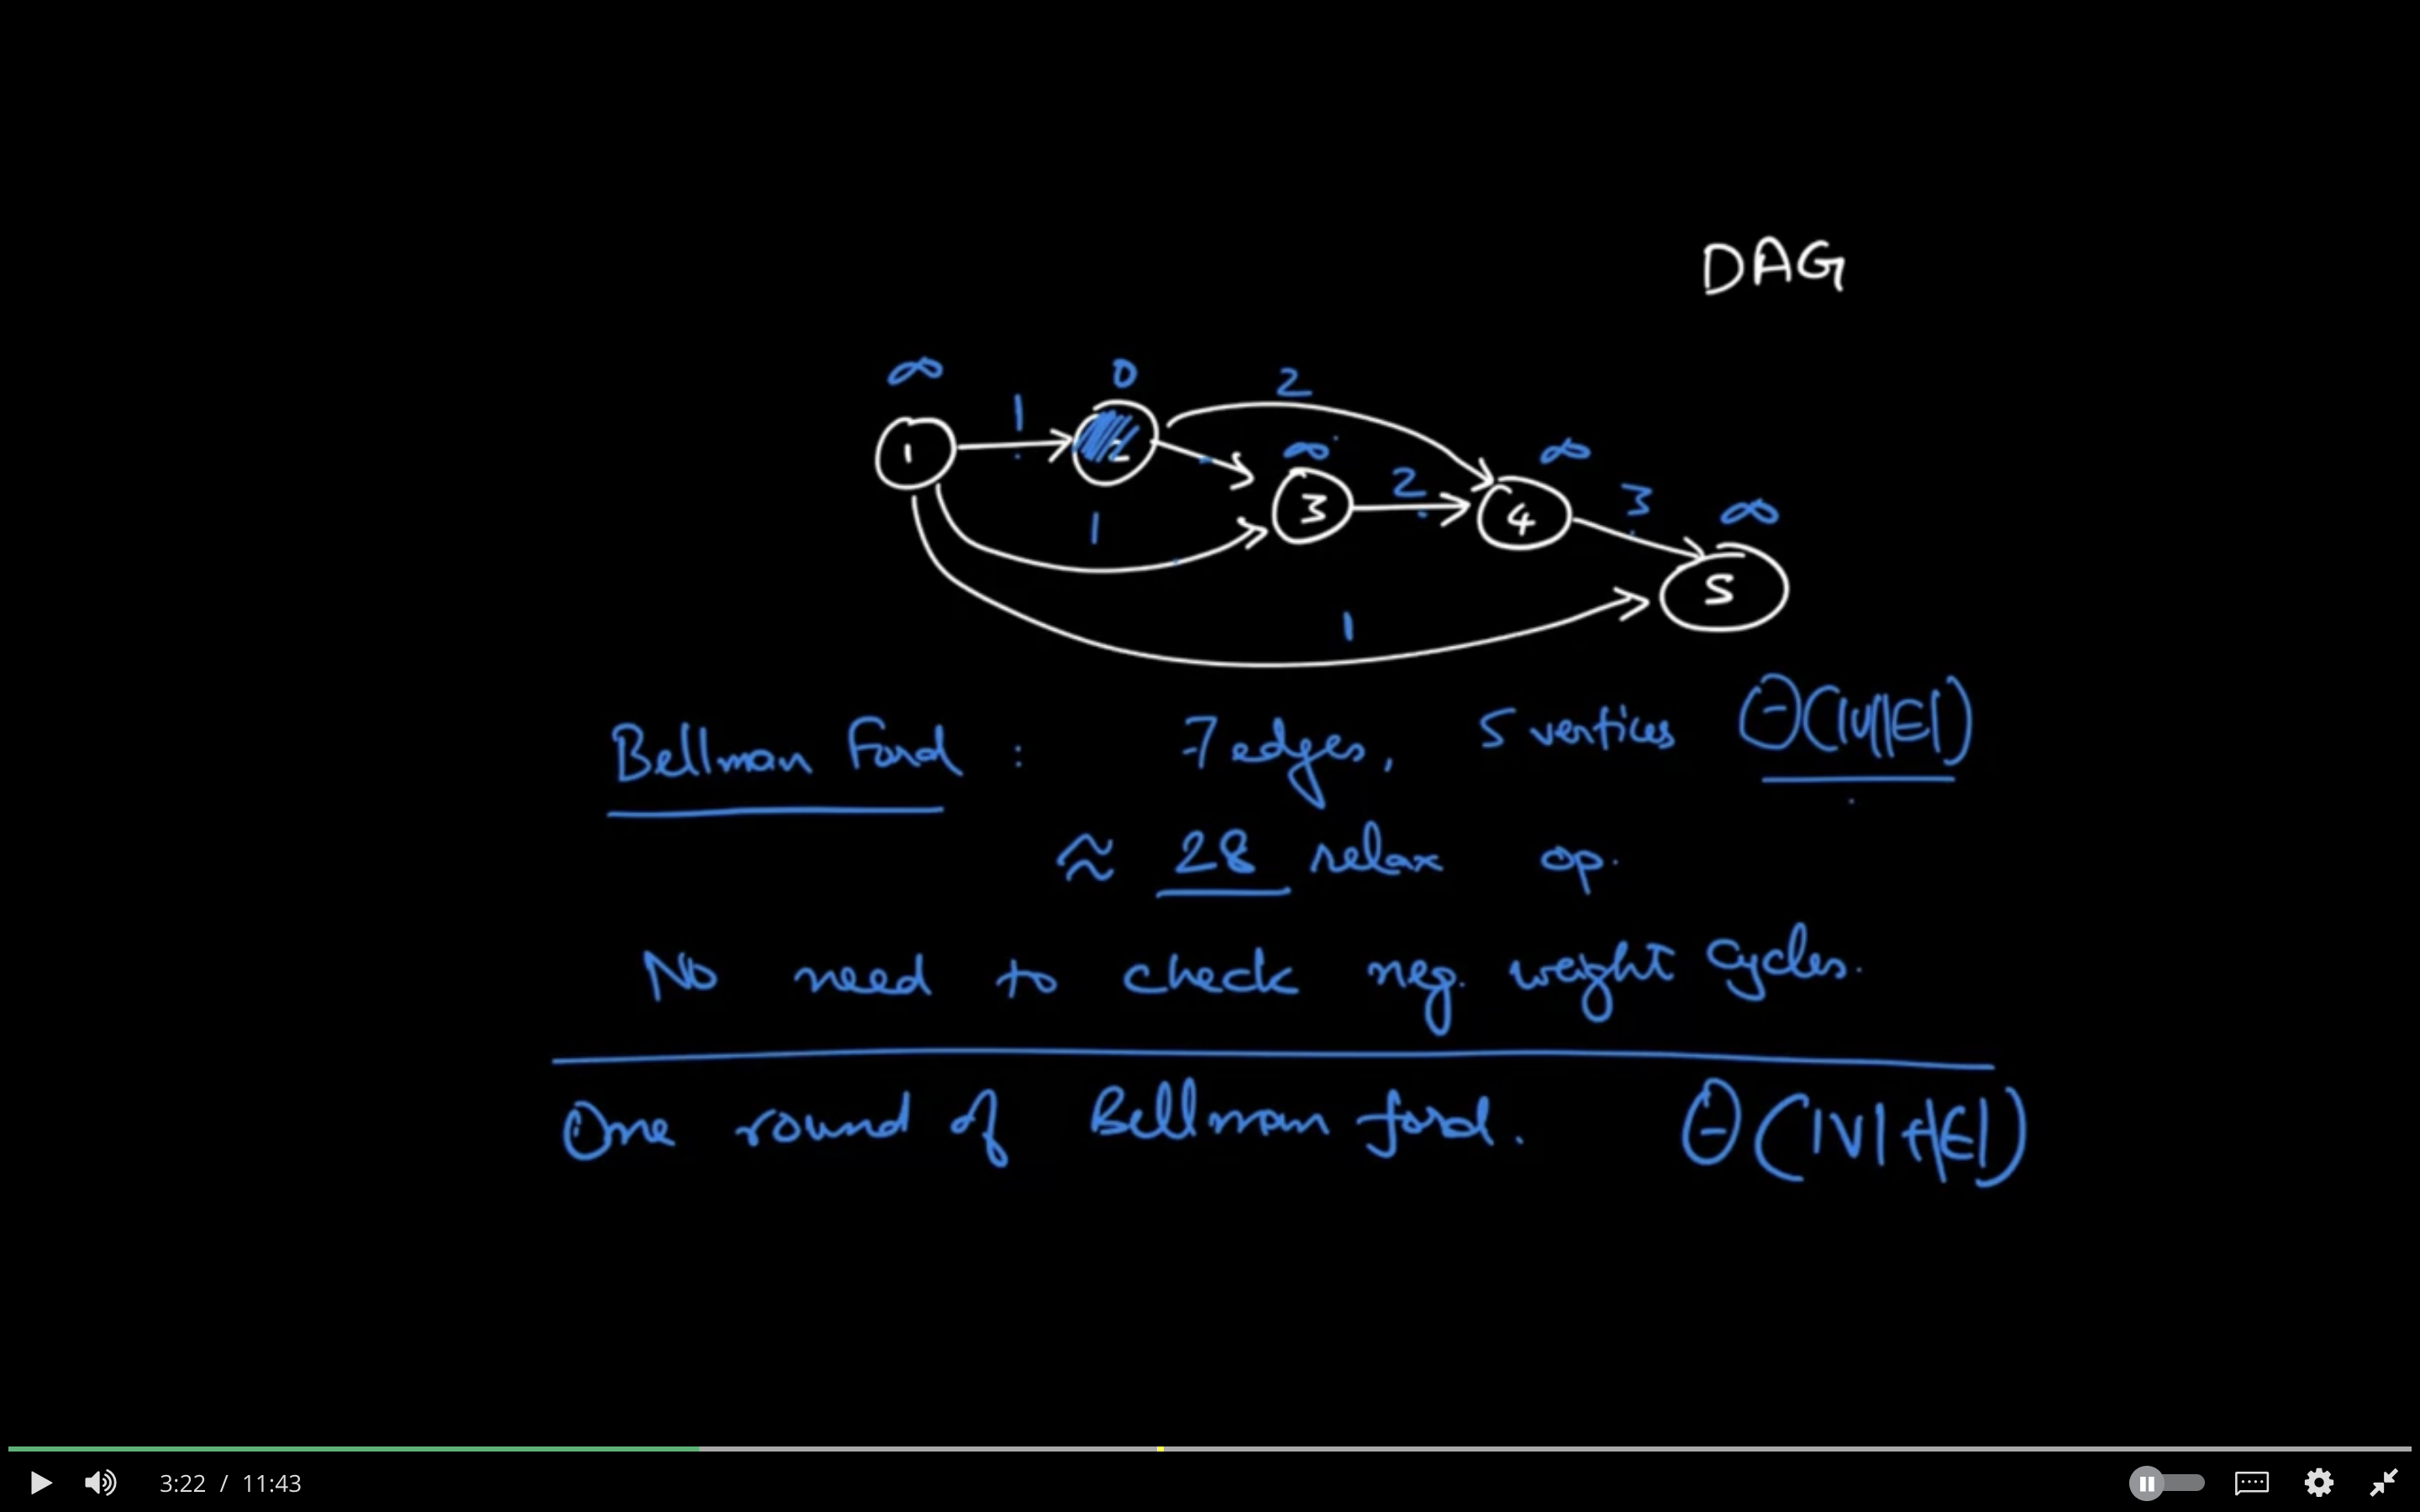 DAG
∞ 0 2
1
1 ∞ ∞
2 3
3 4 ∞
1 5
1
Bellman Ford : 7 edges, 5 vertices Θ(|V||E|)
≈ 28 relax op.
No need to check neg. weight cycles.
One round of Bellman ford. Θ(|V|+|E|)
3:22 / 11:43